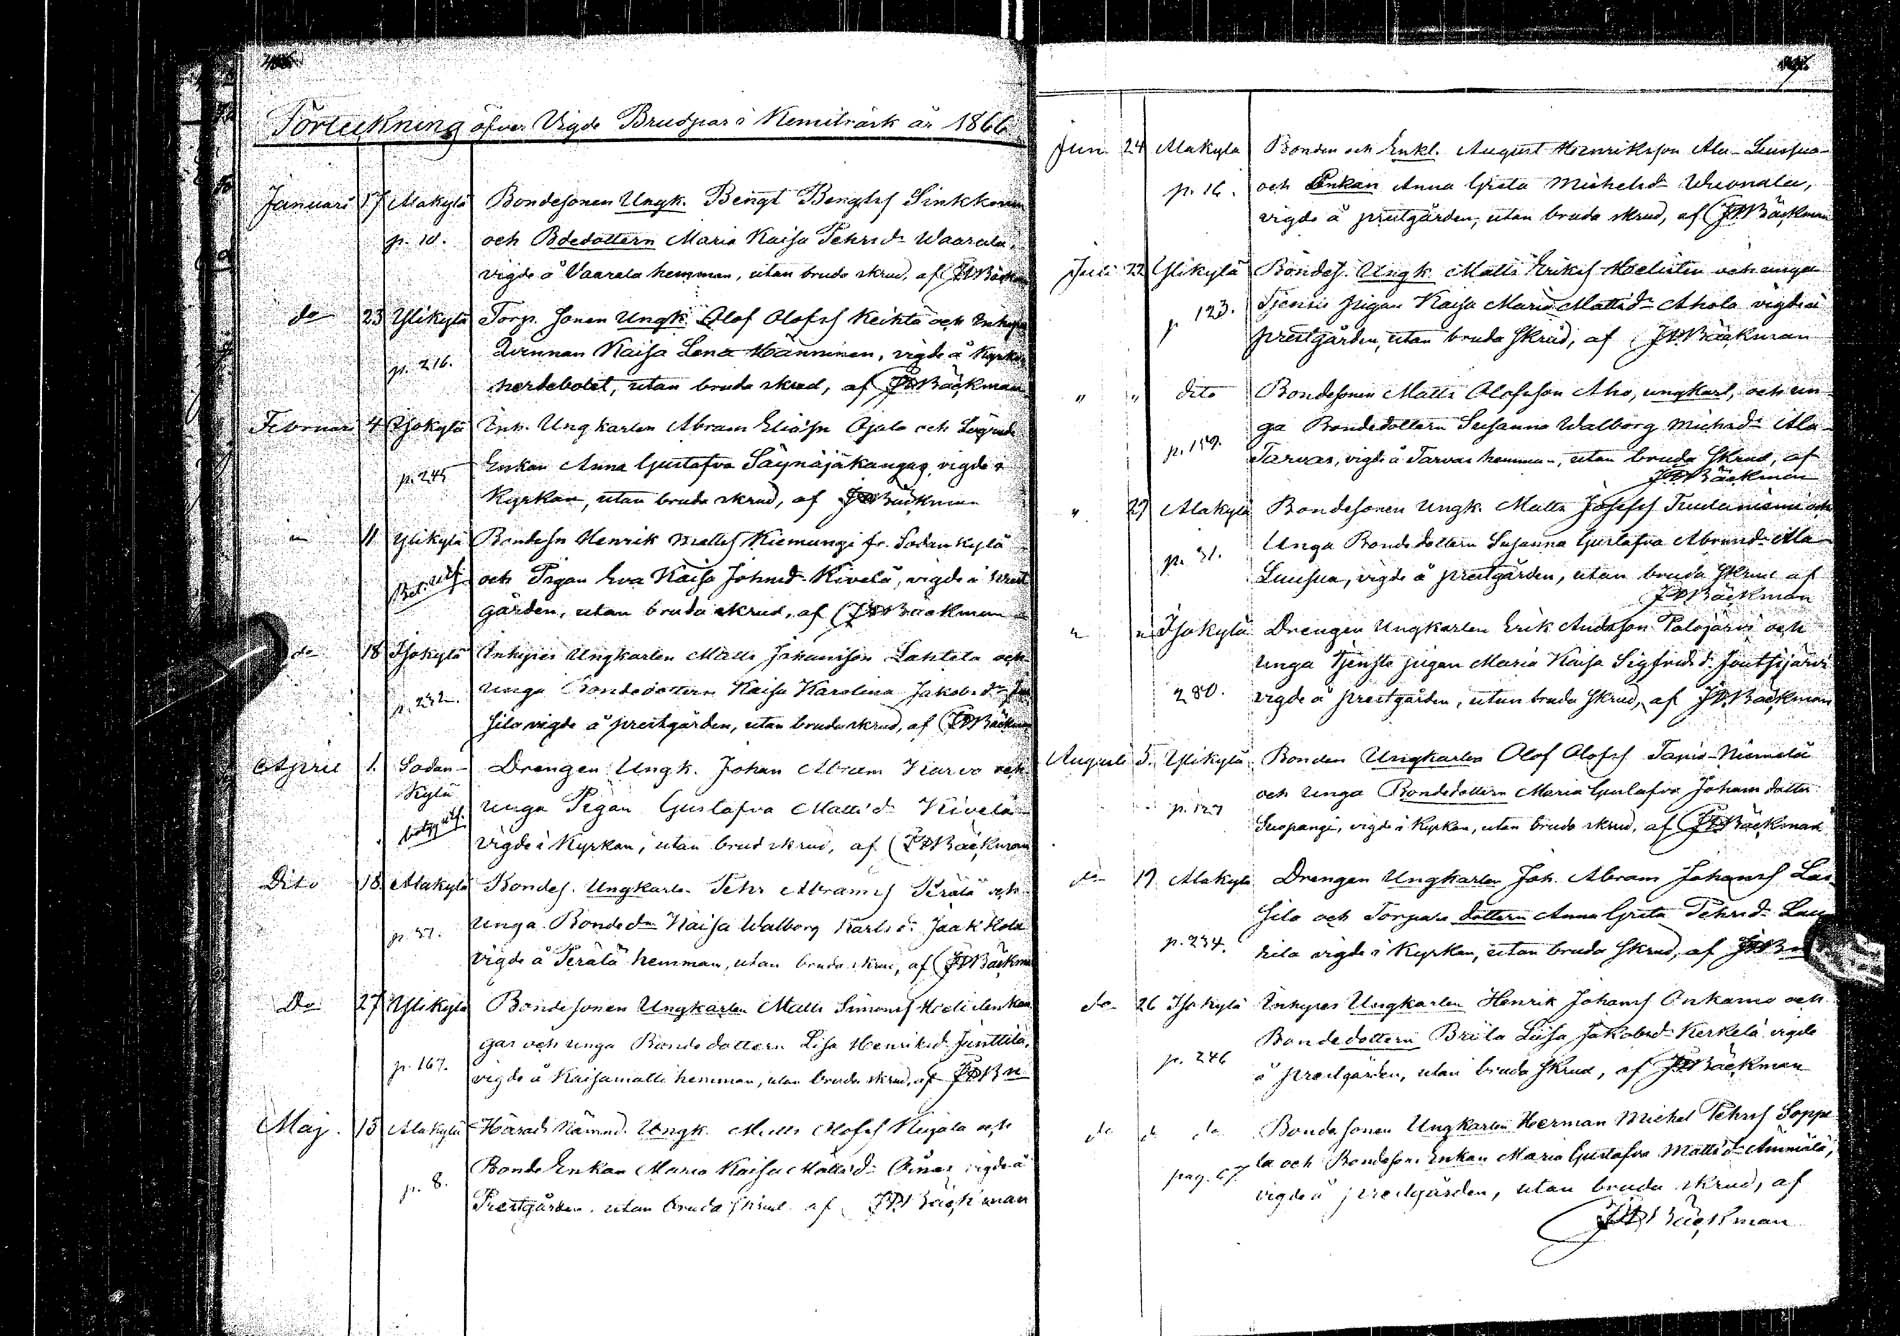 Förteckning öfver Vigde Brudpar i Kemiträsk år 1866
Januari 17 Alakylä Bondesonen Ungk. Bengt Bengtss Sinkkonen
p. 10. och Bdedottern Maria Kaisa Pehrsd. Waarala,
vigde å Vaarala hemman, utan bruda skrud, af JDBäckman
do 23 Ylikylä Torp. Sonen Ungk. Olof Olofss Keikta och Inhyses
p. 216. Qvinnan Kaisa Lena Hänninen, vigde å Kyrko
herdebolet, utan bruda skrud, af JDBäckman
Februari 4 Isokylä Inh. Ungkarlen Abram Eliæsn Ojala och
p. 245 Enkan Anna Gustafva Säynäjäkangas, vigde i
Kyrkan, utan bruda skrud, af JDBäckman
11 Ylikylä Bondesn Henrik Mattss Kiemungi fr. Sodankylä
Bet. utf. och Pigan Eva Kaisa Johnsd. Kivelä, vigde å Prest
gården, utan bruda skrud, af JDBäckman
do 18 Isokylä Inhyses Ungkarlen Matts Johansson Lahtela och
p. 232. unga Bondedottern Kaisa Karolina Jakobsd.
silo vigde å prestgården, utan bruda skrud, af JDBäckman
April 1. Sodan-
kylä Drengen Ungk. Johan Abram Karvo och
betyg utf. unga Pigan Gustafva Mattsd. Kivelä
vigde i Kyrkan, utan brud skrud, af JDBäckman
Dito 18 Alakylä Bondes. Ungkarlen Pehr Abramss Perälä och
p. 37. unga Bonded. Kaisa Walborg Karlsd. Jaakkola
vigde å Perälä hemman, utan bruda skrud, af JDBäckman
Do 27 Ylikylä Bondesonen Ungkarlen Matts Simonss
p. 167. gas och unga Bondedottern Lisa Henriksd. Junttila,
vigde å Kaisamatti hemman, utan bruda skrud, af JDBn
Maj. 13 Alakylä Härads Nämnd. Ungk. Matts Olofss Kujala och
p. 8. Bonde Enkan Maria Kaisa Mattsd. Oinas vigde å
Prestgården utan bruda skrud af JDBäckman
Jun 24 Alakylä Bonden och Enkl. August Henriksson Ala-Luusua
p. 16. och Enkan Anna Greta Michelsd. Wuonala,
vigde å prestgården, utan bruda skrud, af JDBäckman
Juli 22 Ylikylä Bondes. Ungk. Matts Erikss och unga
p 123. Tjenste pigan Kaisa Maria Mattsd. Ahola vigde å
prestgården, utan bruda skrud, af JDBäckman
" " dito Bondesonen Matts Olofsson Aho, ungkarl, och un-
p. 159. ga Bondedottern Susanna Walborg Michsd. Ala-
Tarvas, vigde å Tarvas hemman, utan bruda skrud, af
JDBäckman
" 29 Alakylä Bondesonen Ungk. Matts Josefss Tuulaniemi och
p. 31. Unga Bondedottern Susanna Gustafva Abramsd. Ala-
Luusua, vigde å prestgården, utan bruda skrud af
JDBäckman
" " Isokylä Drengen Ungkarlen Erik Andsson Palojärvi och
280. unga Tjenste pigan Maria Kaisa Sigfridsd. Joutsijärvi
vigde å prestgården, utan bruda skrud, af JDBäckman
Augusti 5. Ylikylä Bonden Ungkarlen Olof Olofss Tapio-Niemelä
p. 127 och Unga Bondedottern Maria Gustafva Johans dotter
Suopangi, vigde i Kyrkan, utan bruda skrud, af JDBäckman
do 19 Alakylä Drengen Ungkarlen Joh. Abram Johanss Lai-
p. 234. silo och Torpare dottern Anna Greta Pehrsd.
rila vigde i Kyrkan, utan bruda skrud, af JDB
do 26 Isokylä Inhyses Ungkarlen Henrik Johanss Onkamo och
p. 246 Bondedottern Brita Lisa Jakobsd. Kerkelä vigde
å prestgården, utan bruda skrud, af JDBäckman
do do do Bondesonen Ungkarlen Herman Michel Pehrss Soppe-
pag. 67 la och Bondesons Enkan Maria Gustafva Mattsd. Ämmälä,
vigde å prestgården, utan bruda skrud, af
JDBäckman